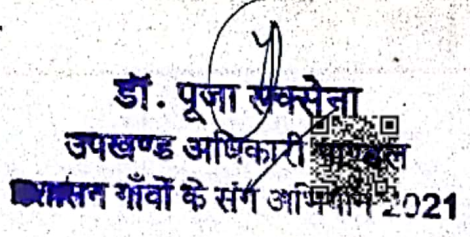 डॉ. पूजा सक्सेना
उपखण्ड अधिकारी
गाँवों के संग अभियान 2021